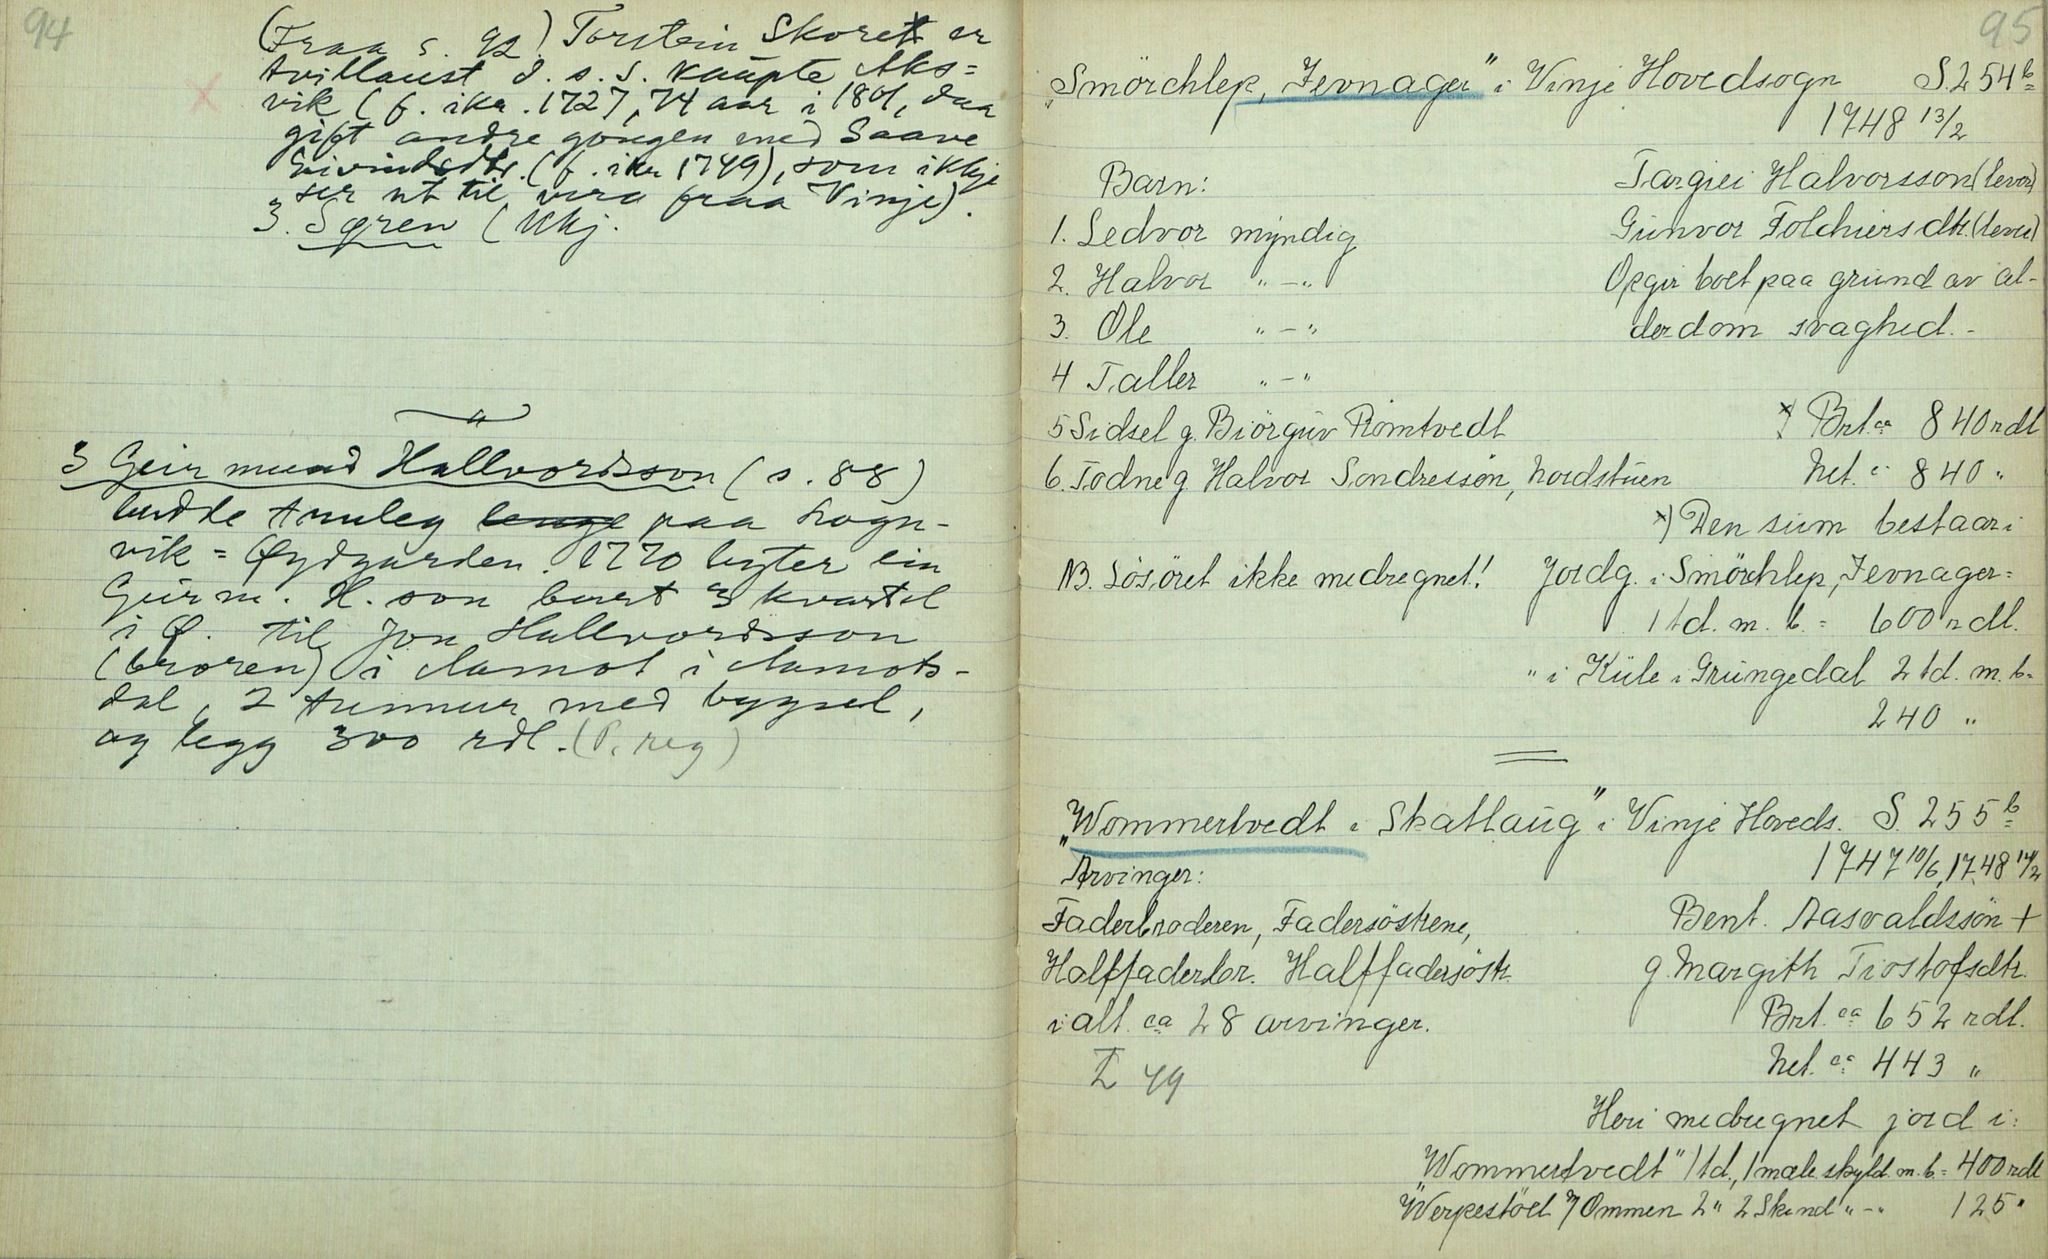 94
(Fraa s. 92) Torstein Skoret er
tvillaust d. s. s. kaupte Aks=
vik (f. ikr. 1727, 74 aar i 1801, daa
gift andre gongen med Saave
Eivindsdtr. (f. ikr 1749), som ikkje
ser ut til vera fraa Vinje).
3. Søren (Ukj.
3 Geirmund Hallvordsson (s. 88)
budde truleg lenge paa Logn-
vik = Øydgarden. 1770 byter ein
Geirm. H. son burt 3 kvartel
i Ø. til Jon Hallvordsson
(broren) i Aamot i Aamots-
dal, 2 tunnur med bygsel,
og legg 300 rdl. (P. reg)
95
"Smörchlep, Jevnager" i Vinje Hovedsogn S. 254 b
1748 13/2
Barn: Targiei Halvorsson (lever)
1. Ledvor myndig Gunvor Folchiersdtr. (lever)
2. Halvor " - " Opgir boet paa grund av al-
3. Ole " - " derdom svaghed. -
4 Taller " - "
5 Sidsel g. Biörguv Romtvedt x) Brt. ca 840 rdl
6. Todne g Halvor Sondressön, Nordstuen Net. " 840 "
x) Den sum bestaar i
NB. Lösöret ikke medregnet! Jordg. i Smörchlep, Jevnager =
1 td. m. b. = 600 rdl.
" i Küle i Grungedal 2 td. m. b =
240 "
"Wommertvedt i Skatlaug" i Vinje Hoveds. S. 255 b
1747 10/6, 1748 14/2
Arvinger:
Faderbroderen, Fadersöstrene, Bent. Aasvaldssön +
Halffaderbr. Halffadersöstr. g. Margith Tiostofsdtr.
i alt. ca 28 arvinger. Brt. ca 652 rdl.
I 49 Net. ca 443 "
Heri medregnet jord i:
"Wommertvedt" 1 td., 1 mæle skyld m. b. = 400 rdl
"Werpestöel" Ommen 2 " 2 Skind " - " 125 "